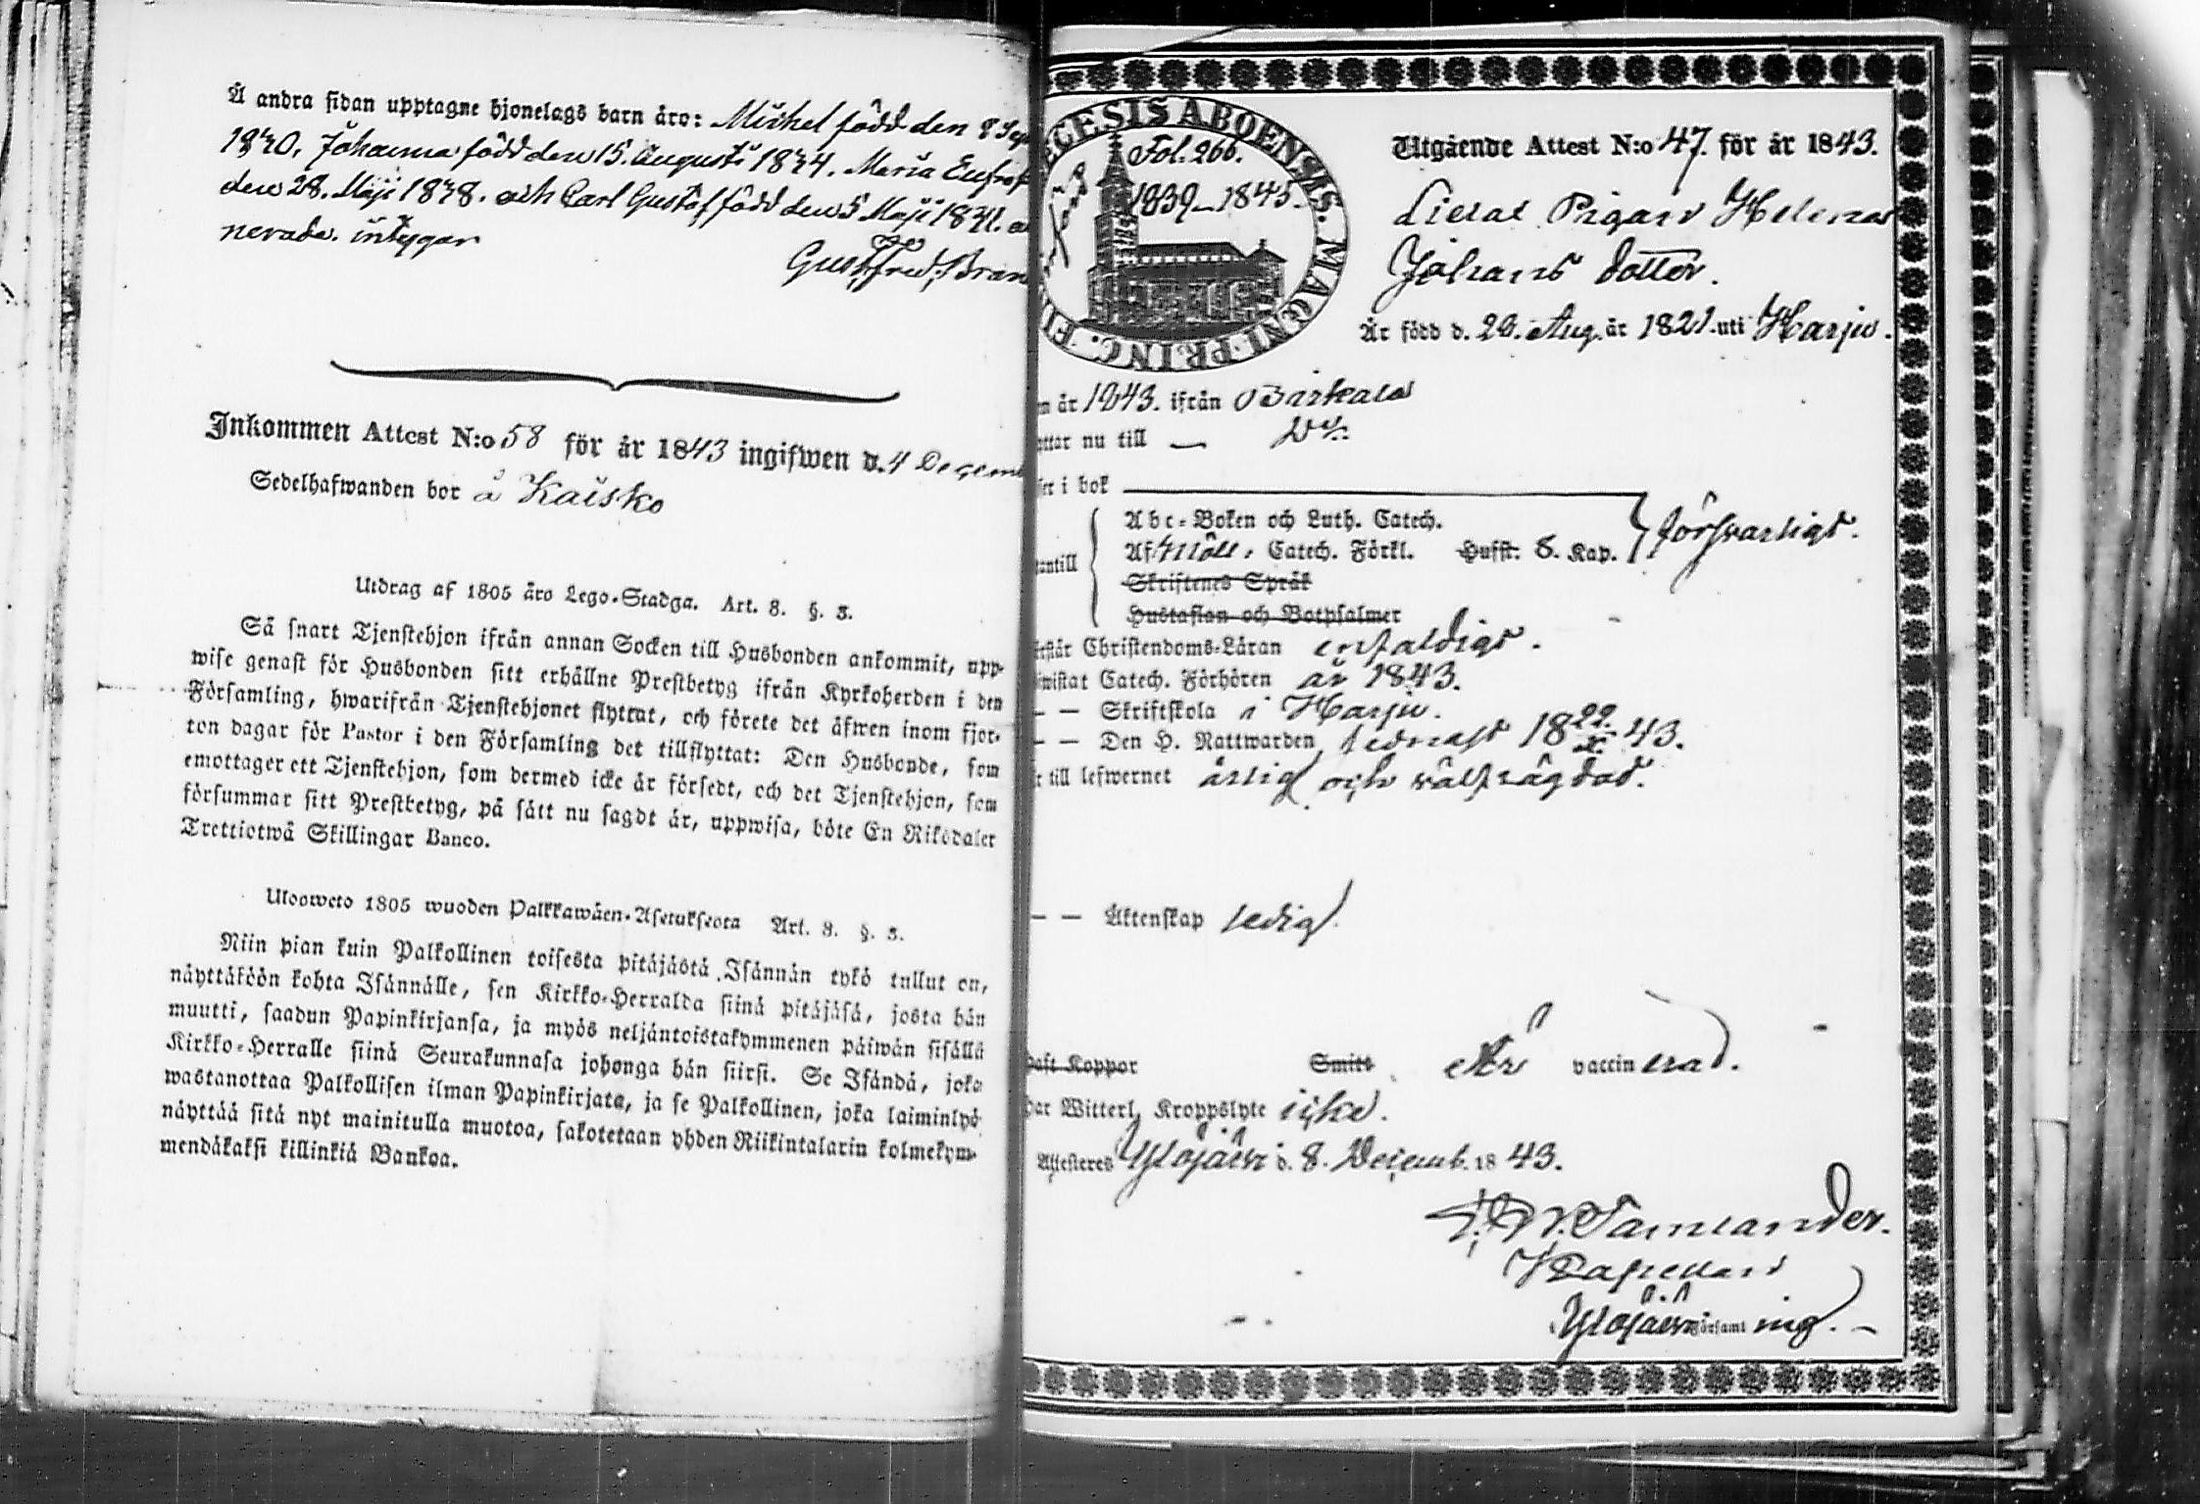 Å andra sidan upptagne hjonelags barn äro: Michel född den 8 Sep
1830, Johanna född den 15. Augusti 1834. Maria Eufros
den 28. Maji 1838. och Carl Gustaf född den 5 Maji 1841.
nerade. intygar
Gust. Fred. Bran
Inkommen Attest N:o 58 för år 1843 ingifwen d. 4 Decem
Sedelhafwanden bor å Kaisko
Utdrag af 1805 åro Lego-Stadga. Art. 8. §. 3.
Så snart Tjenstehjon ifrån annan Socken till Husbonden ankommit, upp-
wise genast för Husbonden sitt erhållne Prestbetyg ifrån Kyrkoherden i den
Församling, hwarifrån Tjenstehjonet flyttat, och förete det äfwen inom fjor-
ton dagar för Pastor i den Församling det tillflyttat: Den Husbonde, som
emottager ett Tjenstehjon, som dermed icke är försedt, och det Tjenstehjon, som
försummar sitt Prestbetyg, på sätt nu sagdt är, uppwisa, böte En Riksdaler
Trettiotwå Skillingar Banco.
Ulosweto 1805 wuoden Palkkawäen-Asetuksesta Art. 8. §. 3.
Niin pian kuin Palkollinen toisesta pitäjästä Isännän tykö tullut on,
näyttäköön kohta Isännälle, sen Kirkko-Herralda siinä pitäjäsä, josta hän
muutti, saadun Papinkirjansa, ja myös neljäntoistakymmenen päiwän sisällä
Kirkko-Herralle siinä Seurakunnasa johonga hän siirsi. Se Isändä, joka
wastanottaa Palkollisen ilman Papinkirjata, ja se Palkollinen, joka laiminlyö
näyttää sitä nyt mainitulla muotoa, sakotetaan yhden Riikintalarin kolmekym-
mendäkaksi killinkiä Bankoa.
ECCLESIS ABOENSIS. MAGNI PRINC. FI
Fol. 266.
1839-1845.
Utgående Attest N:o 47. för år 1843.
Pigan Helena
Johans dotter.
Är född d. 28. Aug. år 1821. uti Harju.
n år 1843. ifrån Birkala
ttar nu till —
ser i bok
Abc-Boken och Luth. Catech.
Af Möll. Catech. Förkl. Husst. 8. Kap. försvarligt.
antill
Skriftenes Språk
Hustaflan och Botpsalmer
rstår Christendoms-Läran enfaldigt.
iwistat Catech. Förhören år 1843.
— — Skriftskola i Harju.
— — Den H. Nattwarden sednast 18 22/X 43.
r till lefwernet ärlig och välfrägdad.
— — Äktenskap ledig.
haft Koppor Smitt Är vaccinerad.
har Witterl. Kroppslyte icke.
Attesteras Ylöjärvi d. 8. Decemb. 1843.
Tamlander.
Kapellan i
Ylöjärvi Församling. —